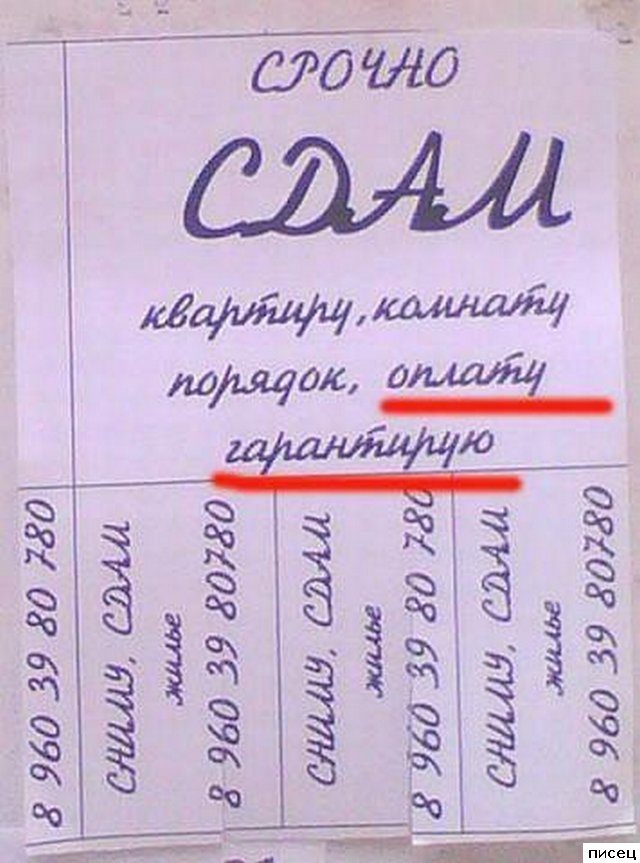 СРОЧНО
СДАМ
квартиру, комнату
порядок, оплату
гарантирую
8 960 39 80 780
СНИМУ, СДАМ
жилье
8 960 39 80780
СНИМУ, СДАМ
жилье
8 960 39 80 780
СНИМУ, СДАМ
жилье
8 960 39 80780
писец